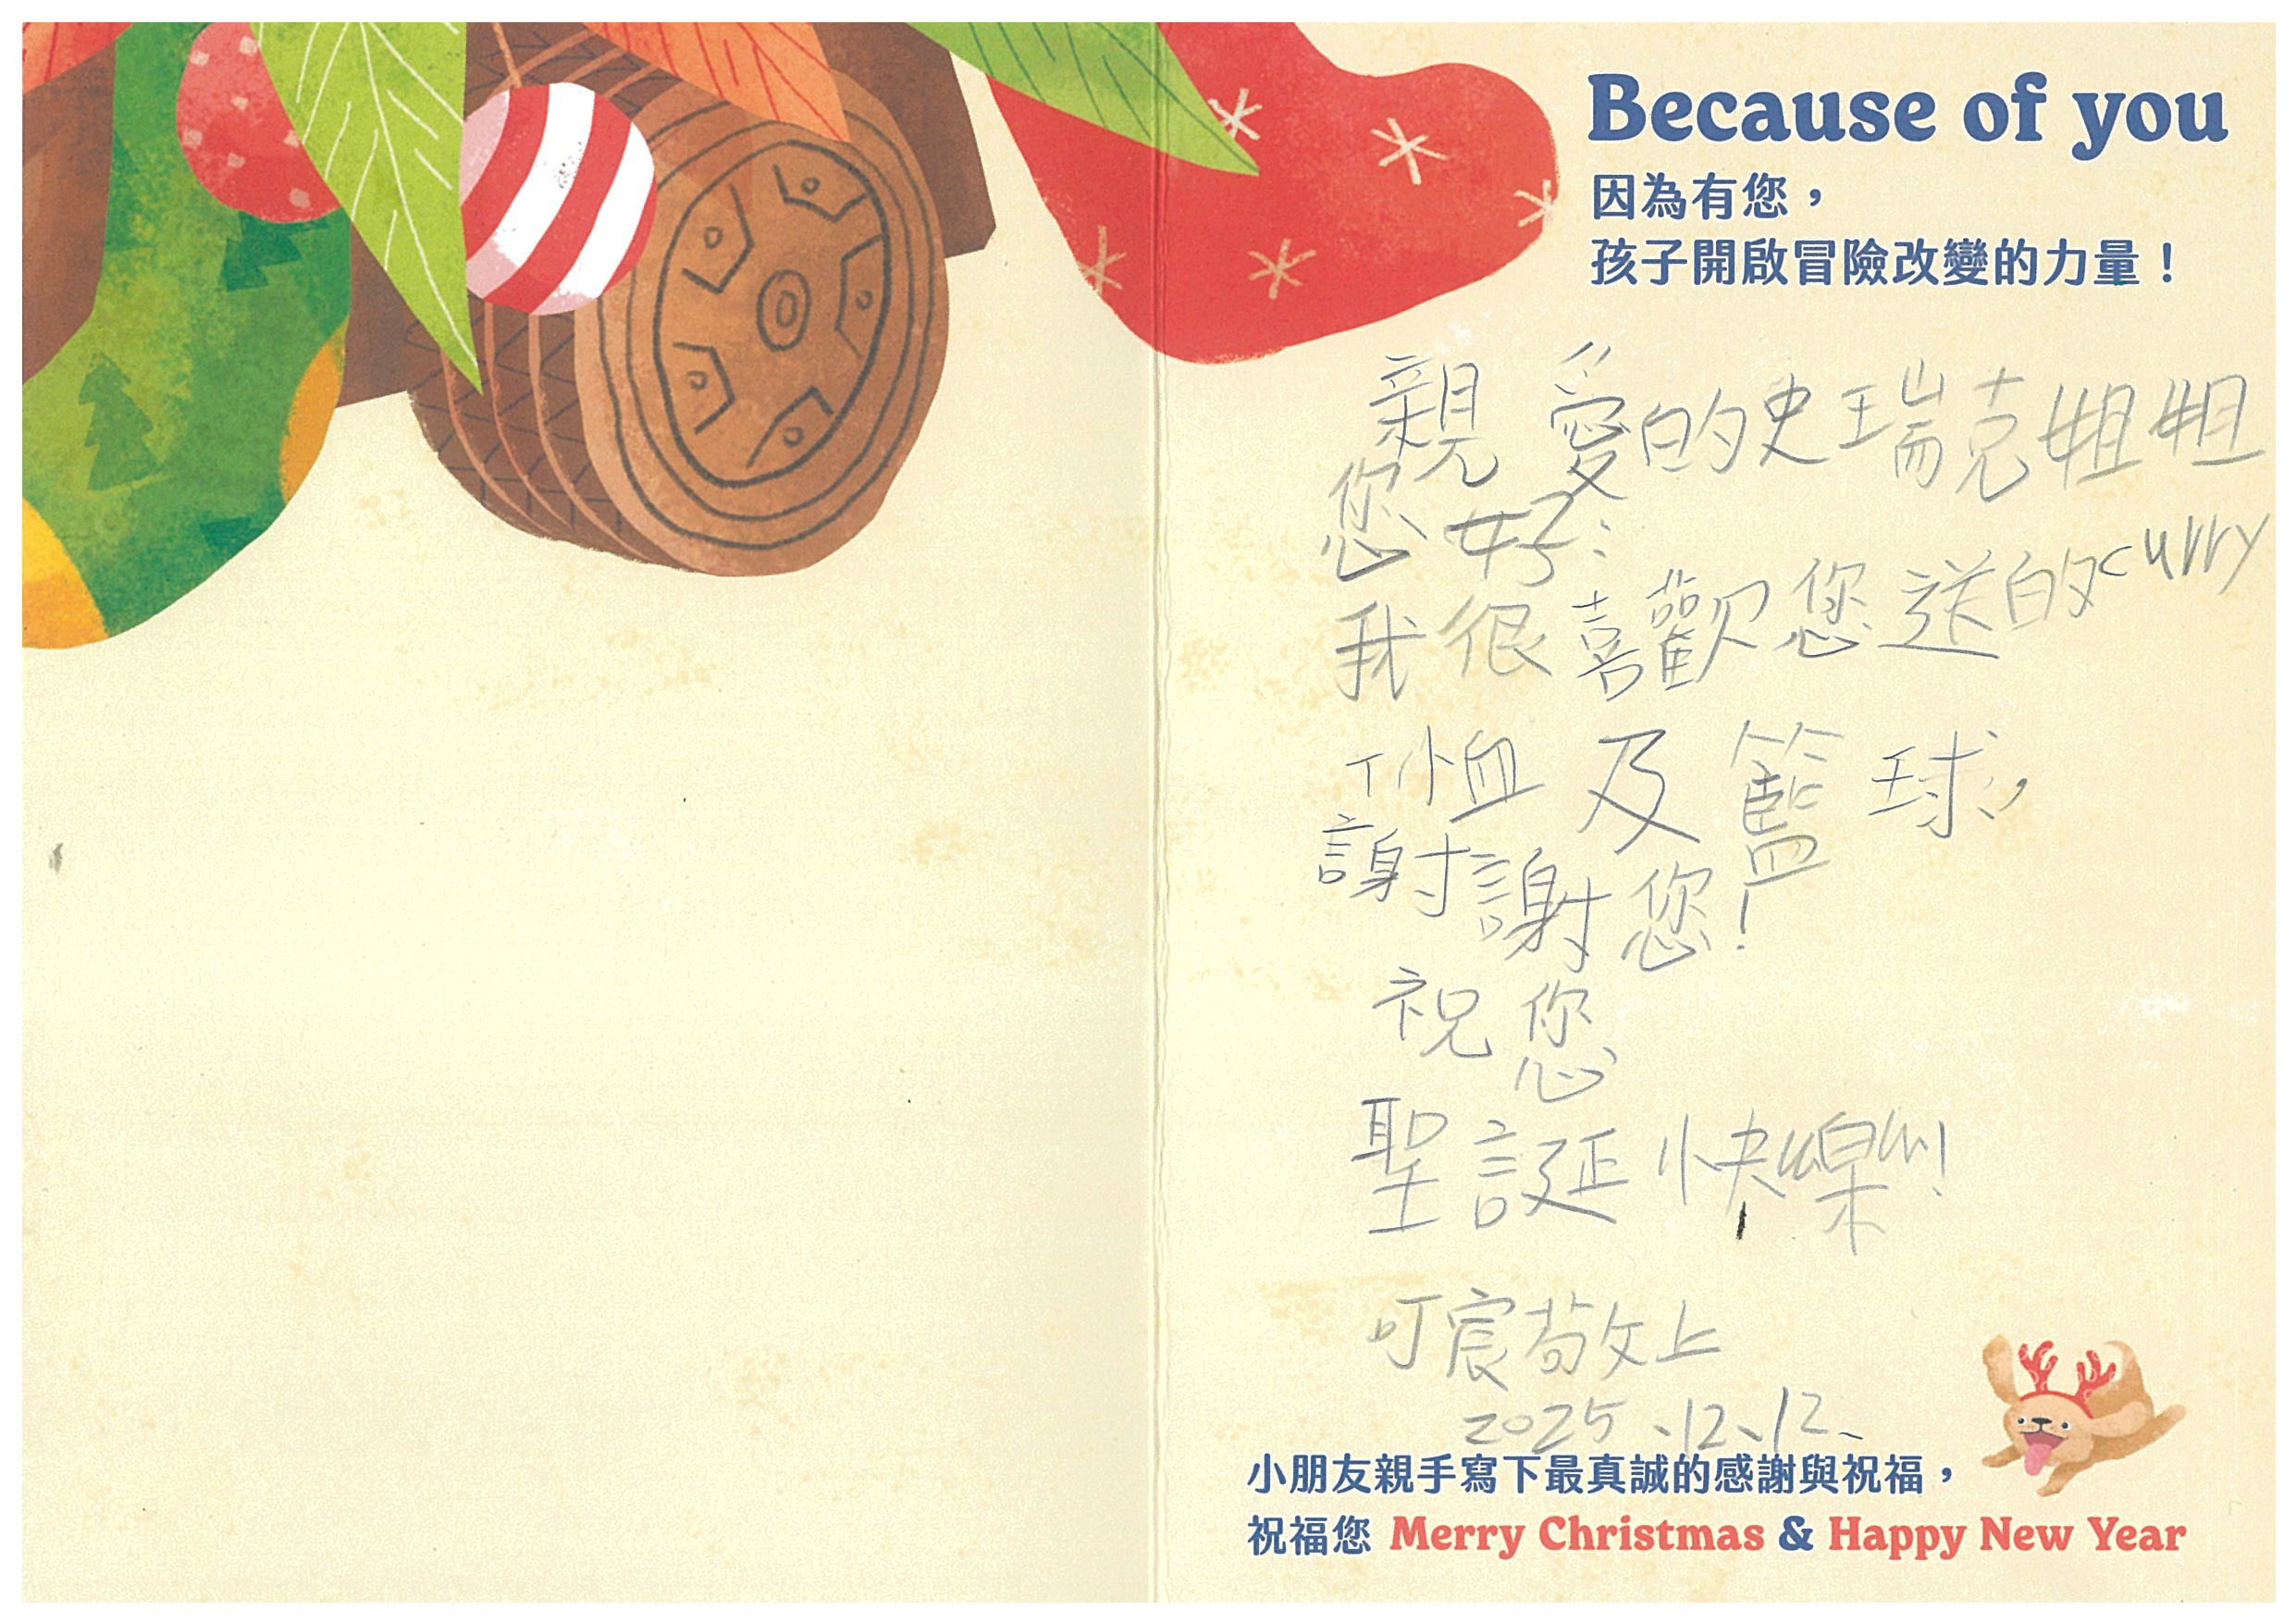 Because of you
因為有您，
孩子開啟冒險改變的力量！
親愛的史瑞克姐姐
您好：
我很喜歡您送的curry
T恤及籃球，
謝謝您！
祝您
聖誕快樂！
叮宸敬上
2025、12、12、
小朋友親手寫下最真誠的感謝與祝福，
祝福您 Merry Christmas & Happy New Year